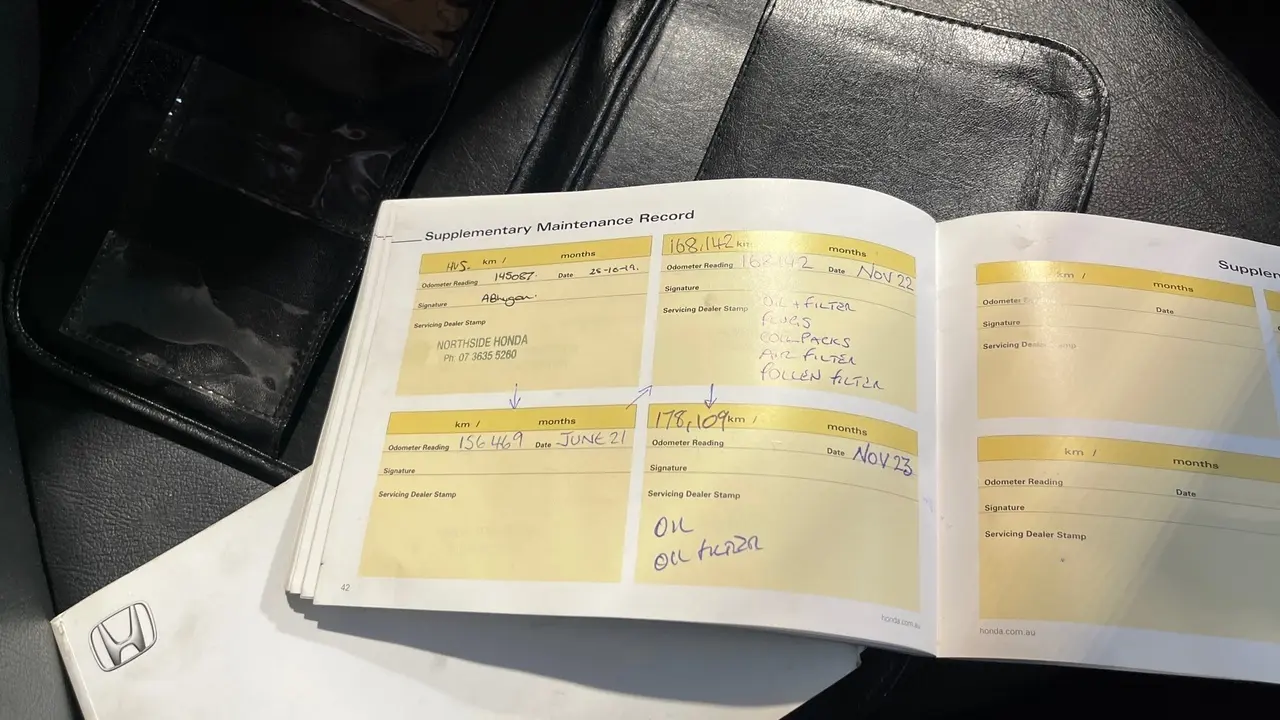 Supplementary Maintenance Record
HVS. km / months
Odometer Reading 145087. Date
Signature
Servicing Dealer Stamp
NORTHSIDE HONDA
Ph: 07 3635 5260
168,142 km months
Odometer Reading 168142 Date NOV 22
Signature
Servicing Dealer Stamp OIL + FILTER
PLUGS
COIL PACKS
AIR FILTER
POLLEN FILTER
km / months
Odometer Reading 156469 Date JUNE 21
Signature
Servicing Dealer Stamp
178,109 km / months
Odometer Reading Date NOV 23
Signature
Servicing Dealer Stamp
OIL
OIL FILTER
42
honda.com.au
km / months
Date
Signature
Servicing Dealer Stamp
km / months
Odometer Reading Date
Signature
Servicing Dealer Stamp
honda.com.au